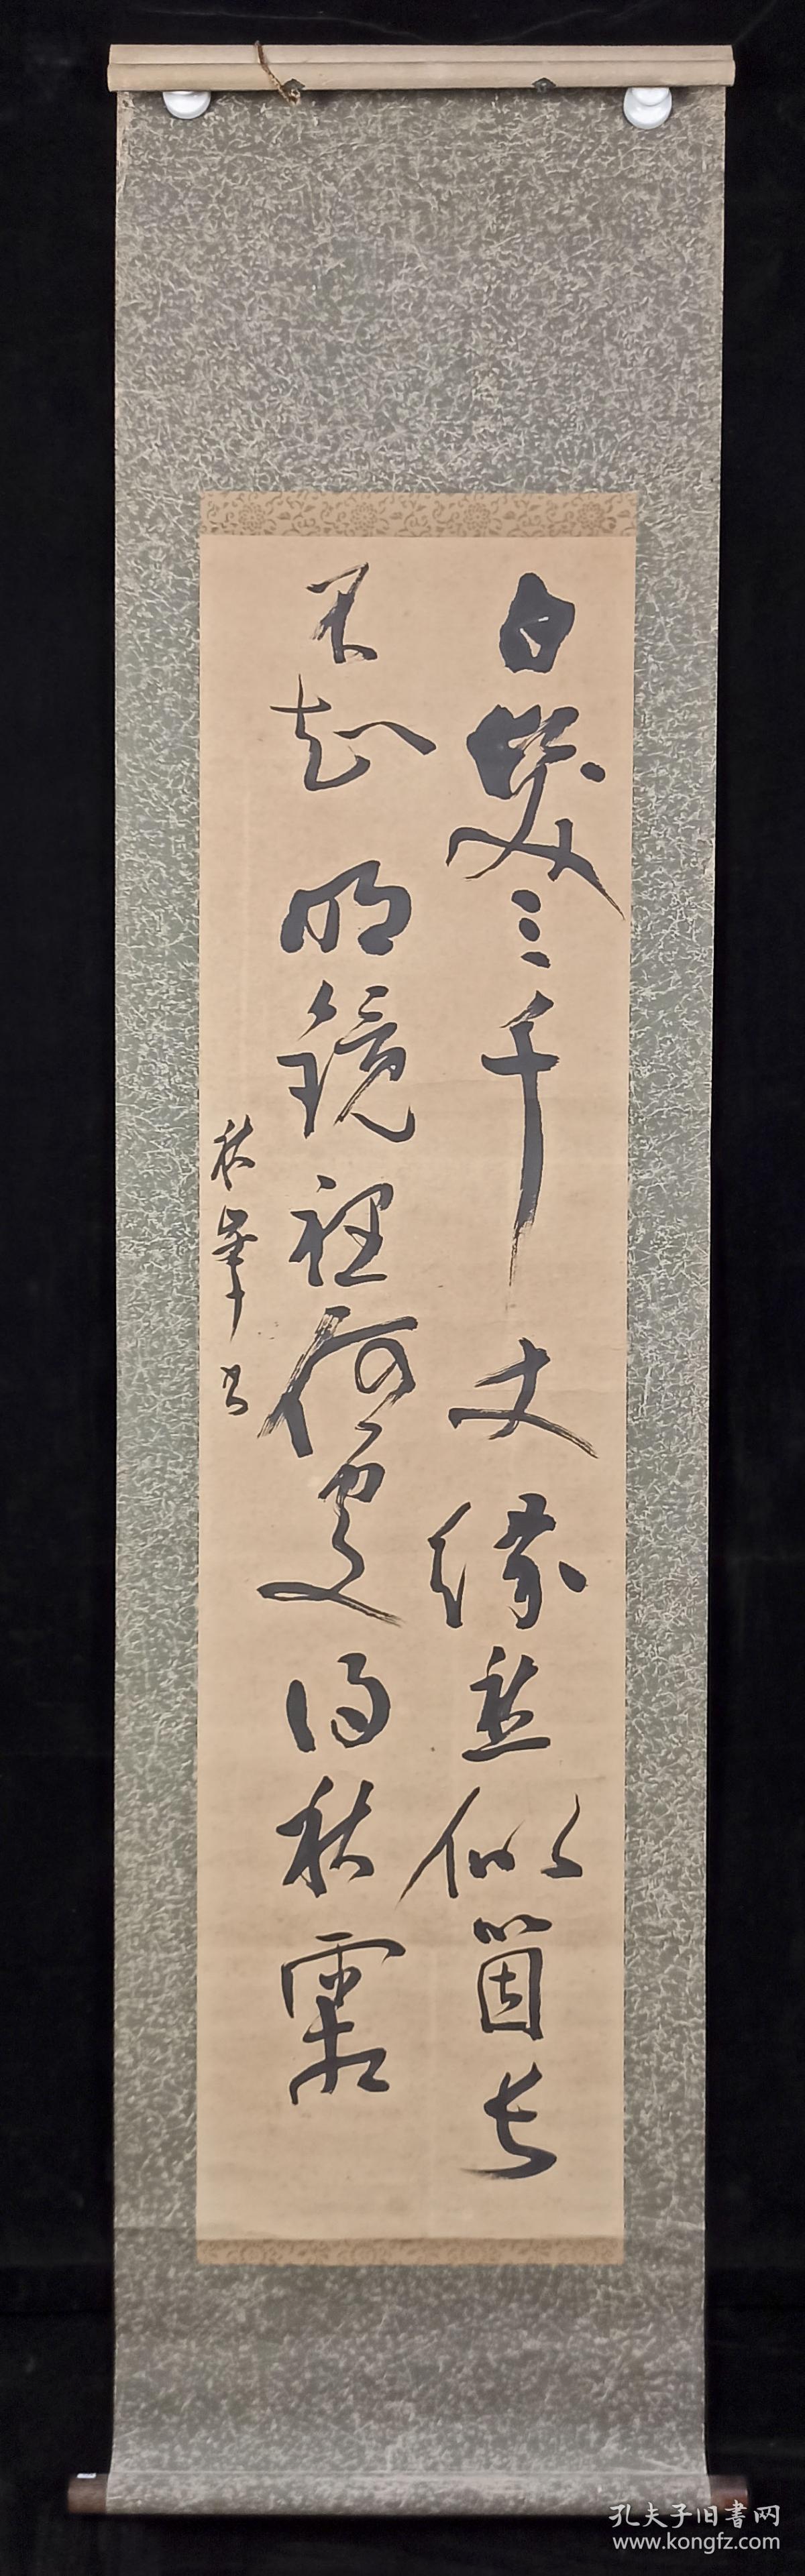 白髮三千丈緣愁似箇長
不知明鏡裡何處得秋霜
秋峯書
孔夫子旧書网
www.kongfz.com